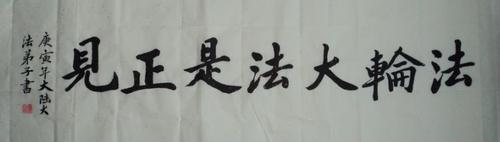 法輪大法是正見
庚寅年大陆大
法弟子書